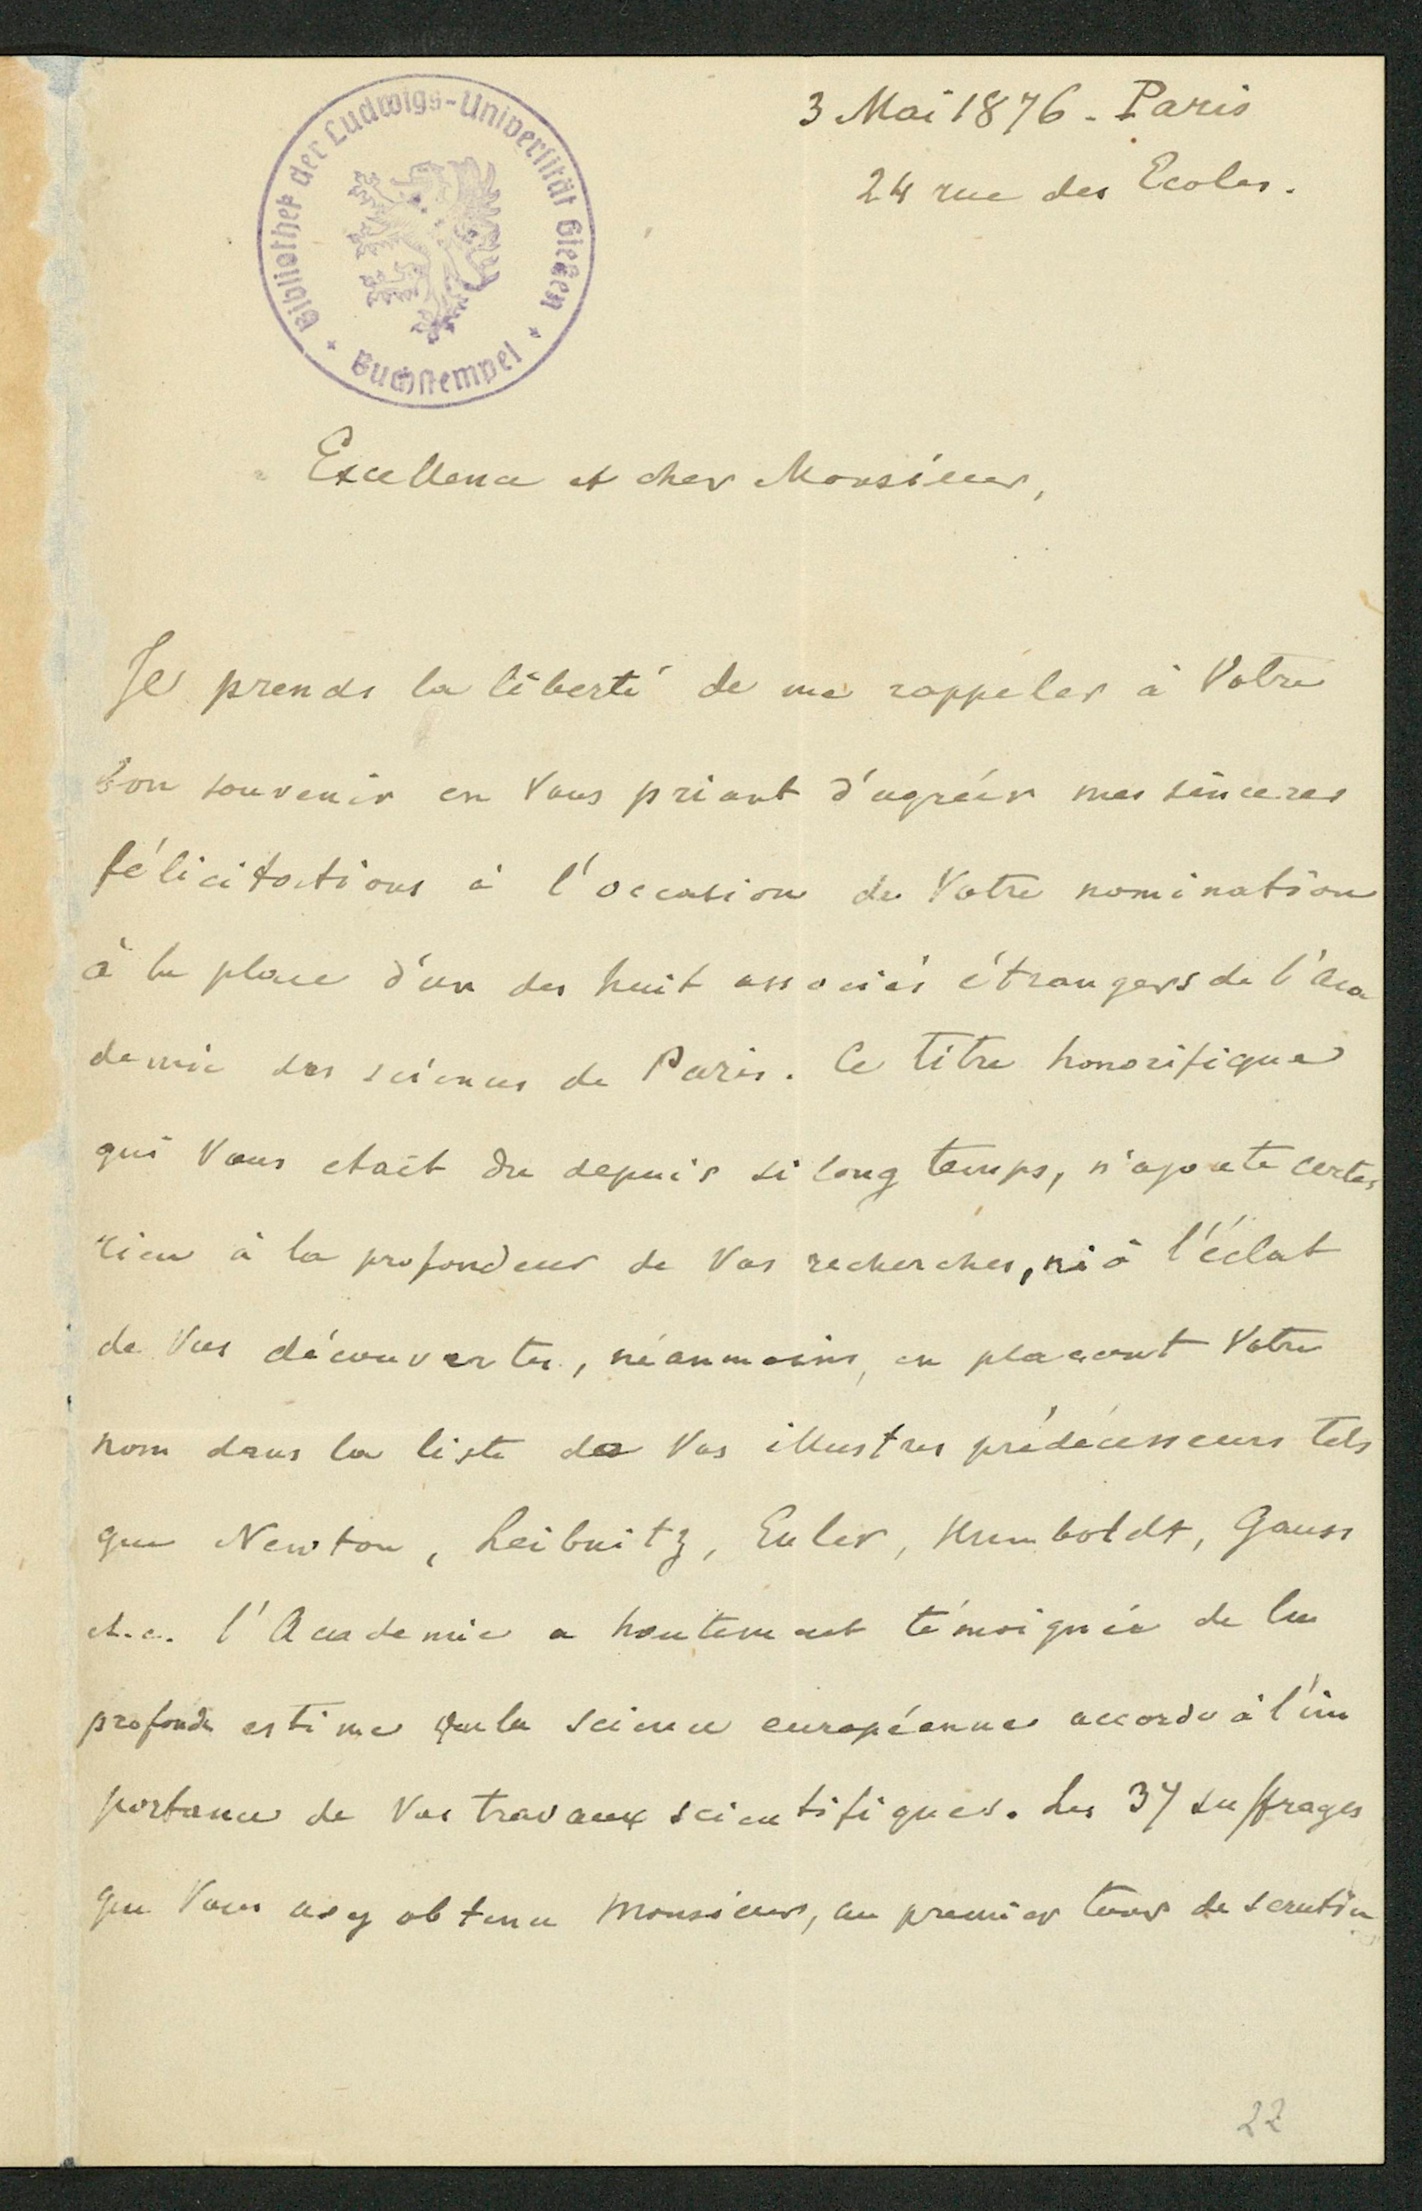 3 Mai 1876 - Paris
24 rue des Ecoles.
Bibliothek der Ludwigs-Universität Gießen
Buchstempel
Excellence et cher Monsieur,
Je prends la liberté de me rappeler à Votre
bon souvenir en Vous priant d'agréer mes sinceres
félicitations à l'occasion de Votre nomination
à la place d'un des huit associés étrangers de l'Aca
demie des sciences de Paris. Ce titre honorifique
qui Vous etait du depuis si long temps, n'ajoute certes
rien à la profondeur de Vos recherches, ni à l'éclat
de Vos découvertes, néanmoins, en placant Votre
nom dans la liste de Vos illustres prédécesseurs tels
que Newton, Leibnitz, Euler, Humboldt, Gauss
et.c. l'Academie a hautement témoignée de la
profonde estime que la science européenne accorde à l'im
portance de Vos travaux scientifiques. Les 37 suffrages
que Vous avez obtenu Monsieur, au premier tour de scrutin
22